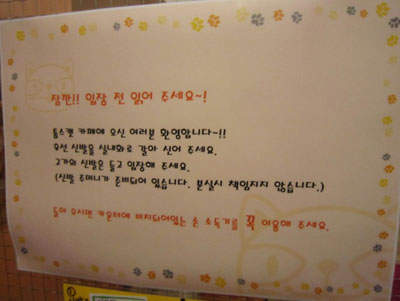 잠깐!! 입장 전 읽어 주세요~!
톰스캣 카페에 오신 여러분 환영합니다~!!
우선 신발을 실내화로 갈아 신어 주세요.
고가의 신발은 들고 입장해 주세요.
(신발 주머니가 준비되어 있습니다. 분실시 책임지지 않습니다.)
들어 오시면 카운터에 배치되어있는 손 소독기를 꼭 이용해 주세요.